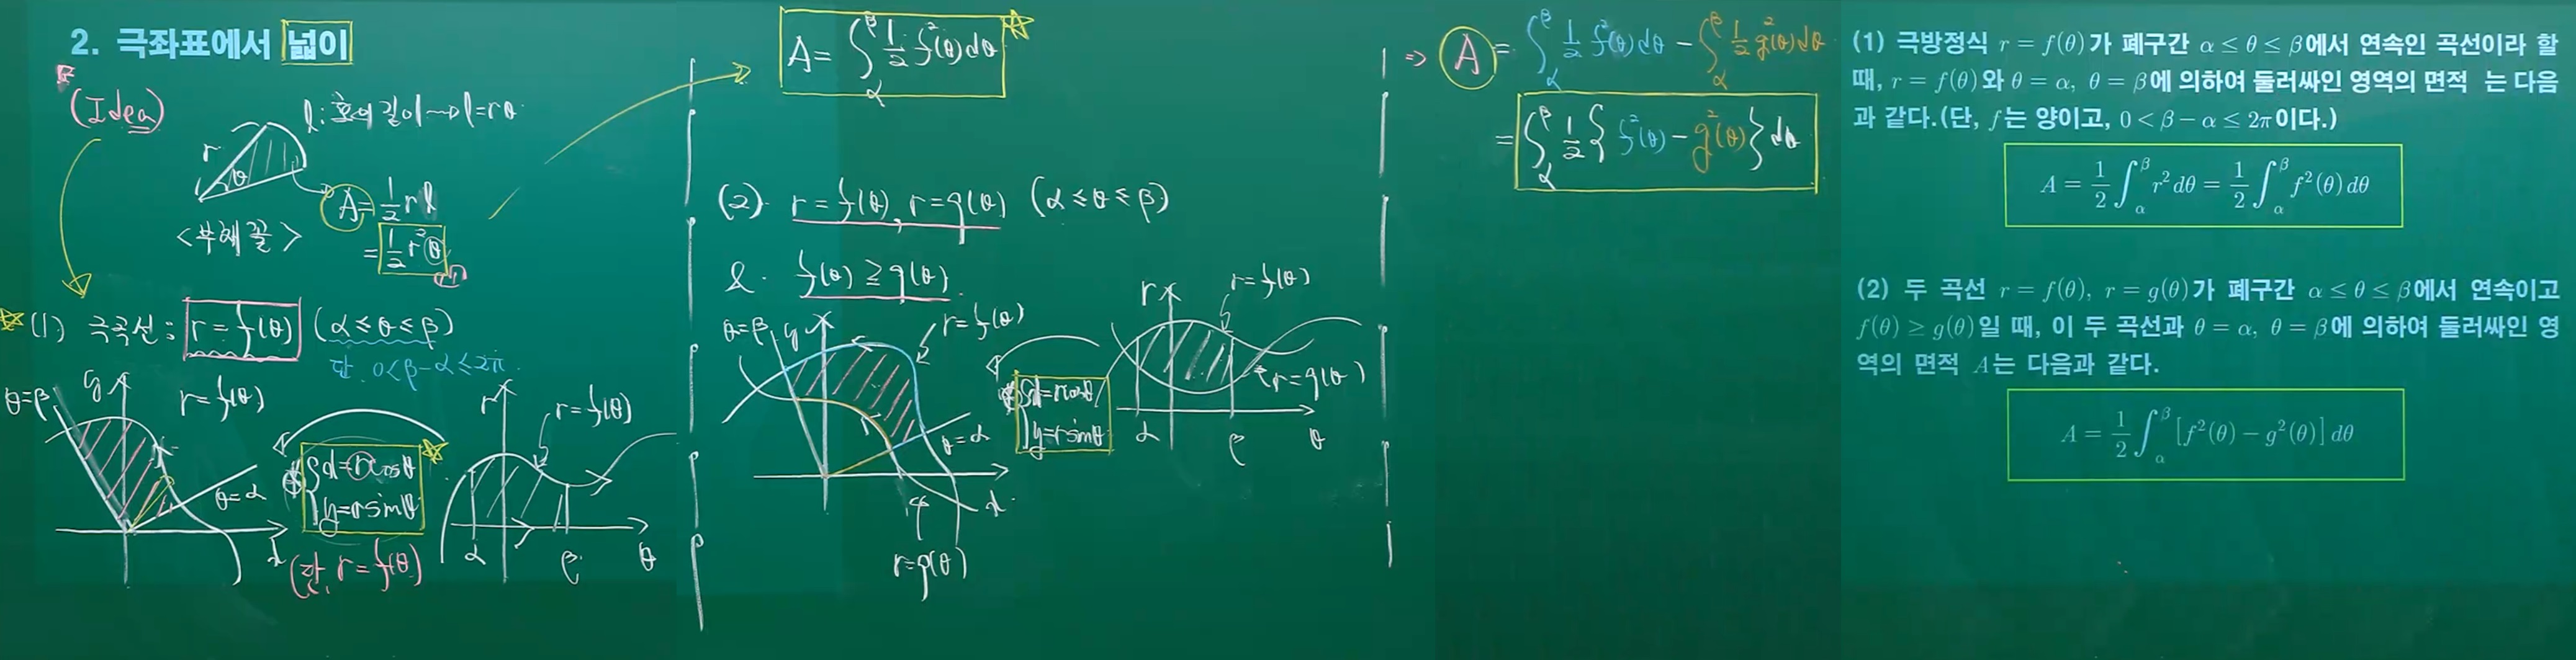 2. 극좌표에서 넓이
(Idea)
l : 호의 길이 → l = rθ
r
θ
A = 1/2 r l
<부채꼴>
= 1/2 r²θ
☆(1) 극곡선 : r = f(θ) (α ≤ θ ≤ β)
단, 0 < β - α ≤ 2π.
θ=β
y
r = f(θ)
θ=α
x
x = r cosθ
y = r sinθ
(단, r = f(θ))
r
r = f(θ)
α
β
θ
A = ∫_α^β 1/2 f²(θ) dθ
(2) r = f(θ), r = g(θ) (α ≤ θ ≤ β)
&. f(θ) ≥ g(θ).
θ=β
y
r = f(θ)
θ=α
x
r = g(θ)
x = r cosθ
y = r sinθ
r
r = f(θ)
r = g(θ)
α
β
θ
⇒ A = ∫_α^β 1/2 f²(θ) dθ - ∫_α^β 1/2 g²(θ) dθ
= ∫_α^β 1/2 { f²(θ) - g²(θ) } dθ
(1) 극방정식 r = f(θ)가 폐구간 α ≤ θ ≤ β에서 연속인 곡선이라 할
때, r = f(θ)와 θ = α, θ = β에 의하여 둘러싸인 영역의 면적 는 다음
과 같다.(단, f는 양이고, 0 < β - α ≤ 2π이다.)
A = 1/2 ∫_α^β r² dθ = 1/2 ∫_α^β f²(θ) dθ
(2) 두 곡선 r = f(θ), r = g(θ)가 폐구간 α ≤ θ ≤ β에서 연속이고
f(θ) ≥ g(θ)일 때, 이 두 곡선과 θ = α, θ = β에 의하여 둘러싸인 영
역의 면적 A는 다음과 같다.
A = 1/2 ∫_α^β [f²(θ) - g²(θ)] dθ